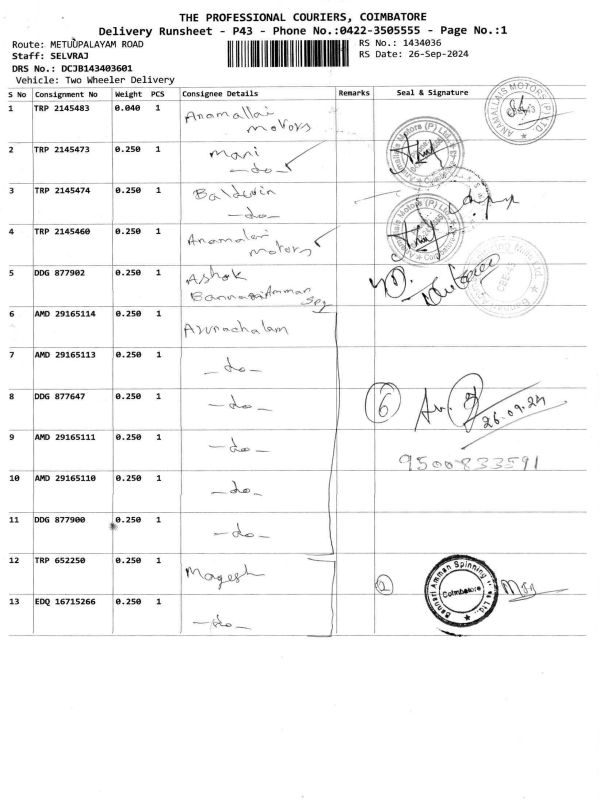 THE PROFESSIONAL COURIERS, COIMBATORE
Delivery Runsheet - P43 - Phone No.:0422-3505555 - Page No.:1
Route: METUUPALAYAM ROAD
RS No.: 1434036
Staff: SELVRAJ
RS Date: 26-Sep-2024
DRS No.: DCJB143403601
Vehicle: Two Wheeler Delivery
S No Consignment No Weight PCS Consignee Details Remarks Seal & Signature
1 TRP 2145483 0.040 1 Anamallai
motors
2 TRP 2145473 0.250 1 Mani
-do-
3 TRP 2145474 0.250 1 Baldwin
-do-
4 TRP 2145460 0.250 1 Anamalai
motors
5 DDG 877902 0.250 1 Ashok
Bannari Amman
Spg
6 AMD 29165114 0.250 1 Arunachalam
7 AMD 29165113 0.250 1 -do-
8 DDG 877647 0.250 1 -do- 6
26.09.24
9 AMD 29165111 0.250 1 -do- 9500833591
10 AMD 29165110 0.250 1 -do-
11 DDG 877900 0.250 1 -do-
12 TRP 652250 0.250 1 Magesh 2
Bannari Amman Spinning
Coimbatore
13 EDQ 16715266 0.250 1 -do-
ANAMALLAIS MOTORS (P) LTD